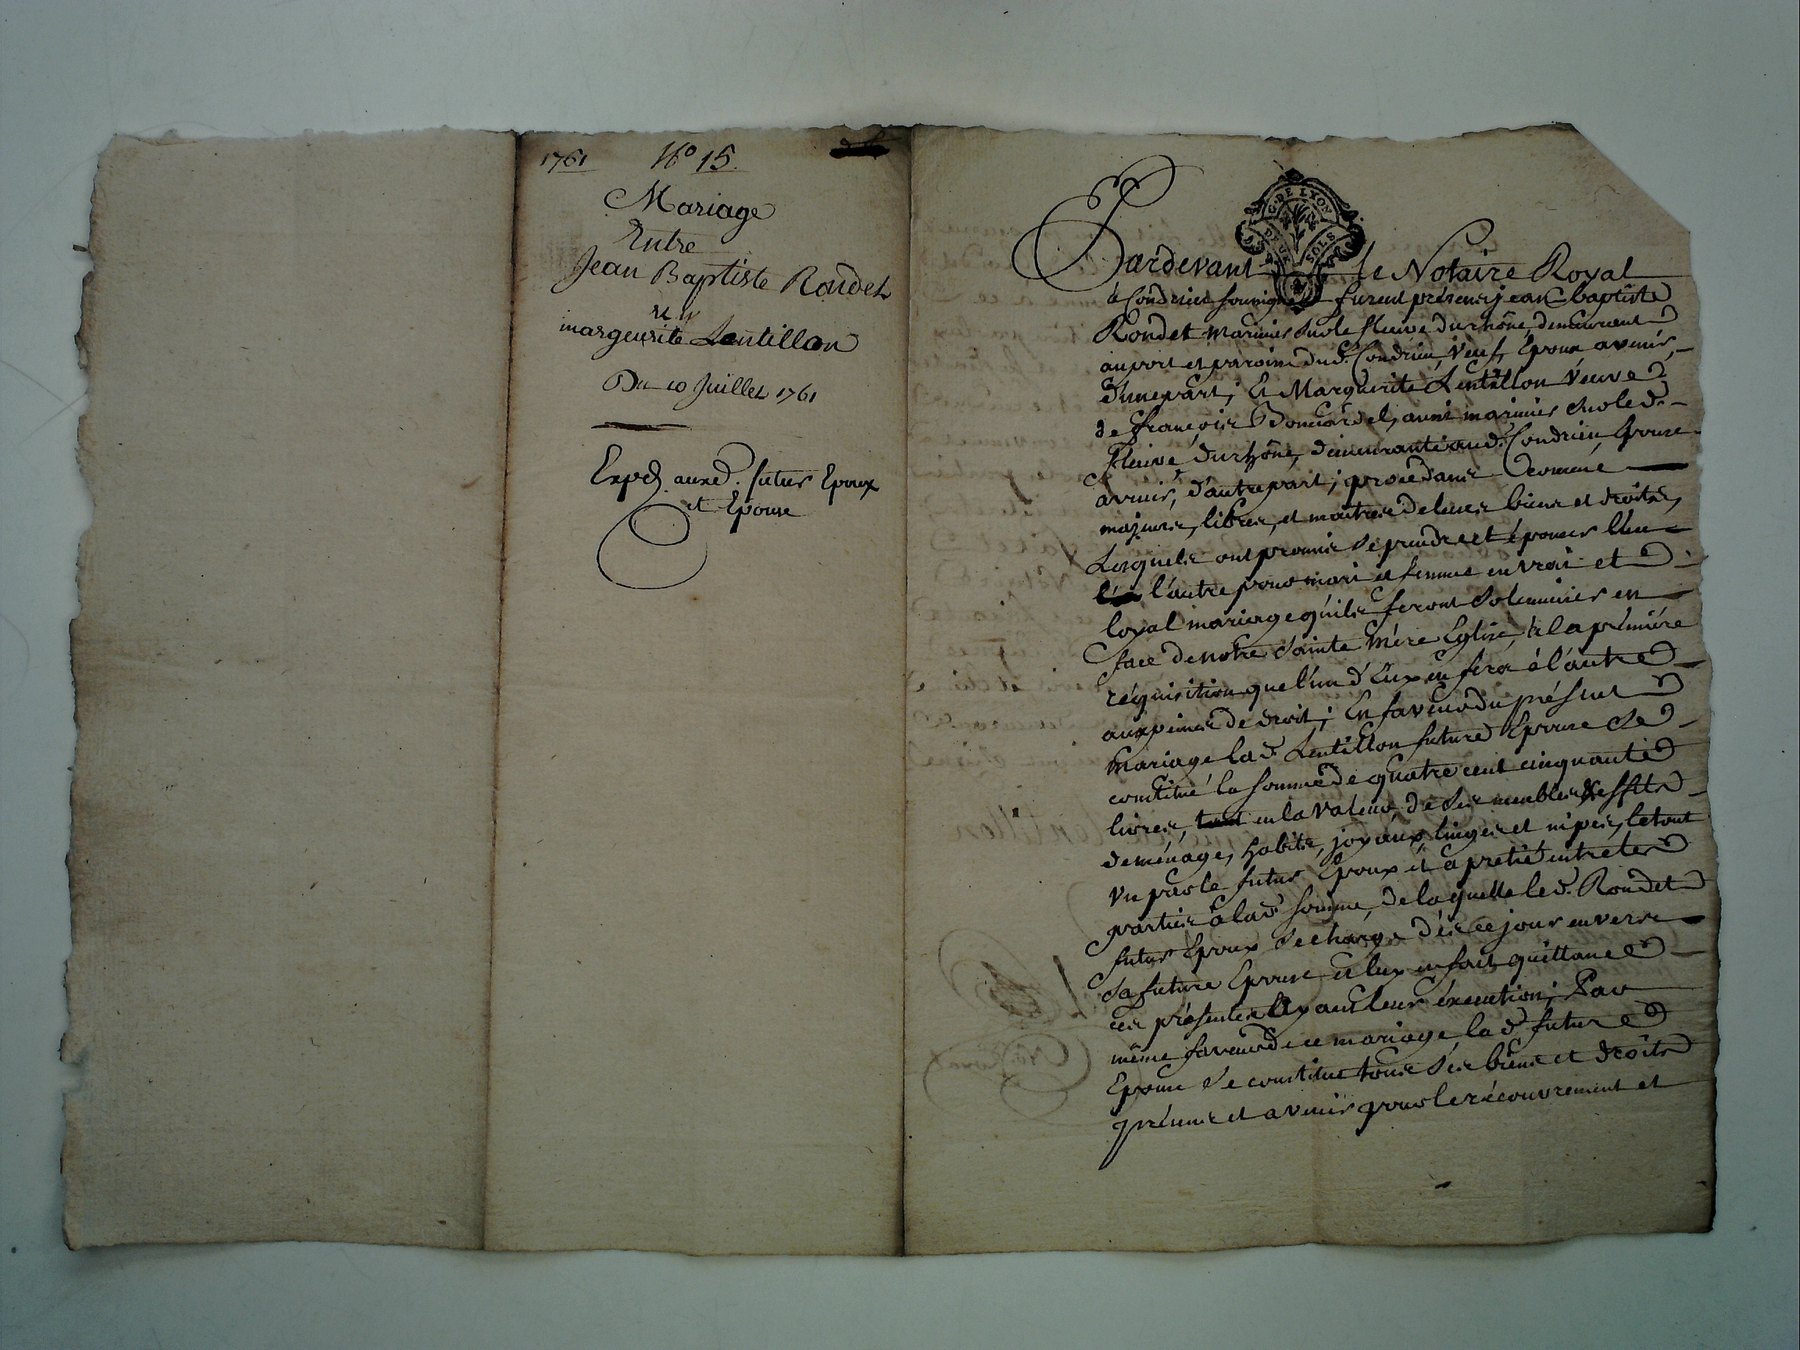 1761 No 15.
Mariage
Entre
Jean Baptiste Rondet
et
marguerite Lentillon
Du 10 Juillet 1761
Expd. auxd. futurs Epoux
et Epouse
G. DE LYON
SOLS
Pardevant le Notaire Royal
à Condrieu soussigné furent présens jean baptiste
Rondet marinier sur le fleuve du rhône, demeurant
au port et paroisse dud. Condrieu, veuf, Epoux avenir,
d'une part; Et Marguerite Lentillon veuve
de françois Bonnardel, aussi marinier sur led.
fleuve du rhône, demeurante aud. Condrieu, Epouse
avenir, d'autre part; procedans comme
majeurs, libres, et maitres de leurs biens et droits,
Lesquels ont promis se prendre et épouser l'un
l'autre pour mari et femme en vrai et
loyal mariage qu'ils feront solemniser en
face de notre sainte mère Eglise à la première
réquisition que l'un d'Eux en fera à l'autre
aux peines de droit; En faveur du présent
mariage lad. Lentillon future Epouse se
constitué la somme de quatre cent cinquante
livres, en la valeur de ses meubles & effets
de ménage, habits, joyaux linges et nipes, le tout
vu par le futur Epoux et apretié entre les
parties à lad. somme, de laquelle led. Rondet
futur Epoux se charge dès ce jour envers
sa future Epouse et luy en fait quittance
ces présentes ayant leur éxecution; Par
même faveur de ce mariage, lad. future
Epouse se constitue tous ses biens et droits
présens et avenir pour le récouvrement et